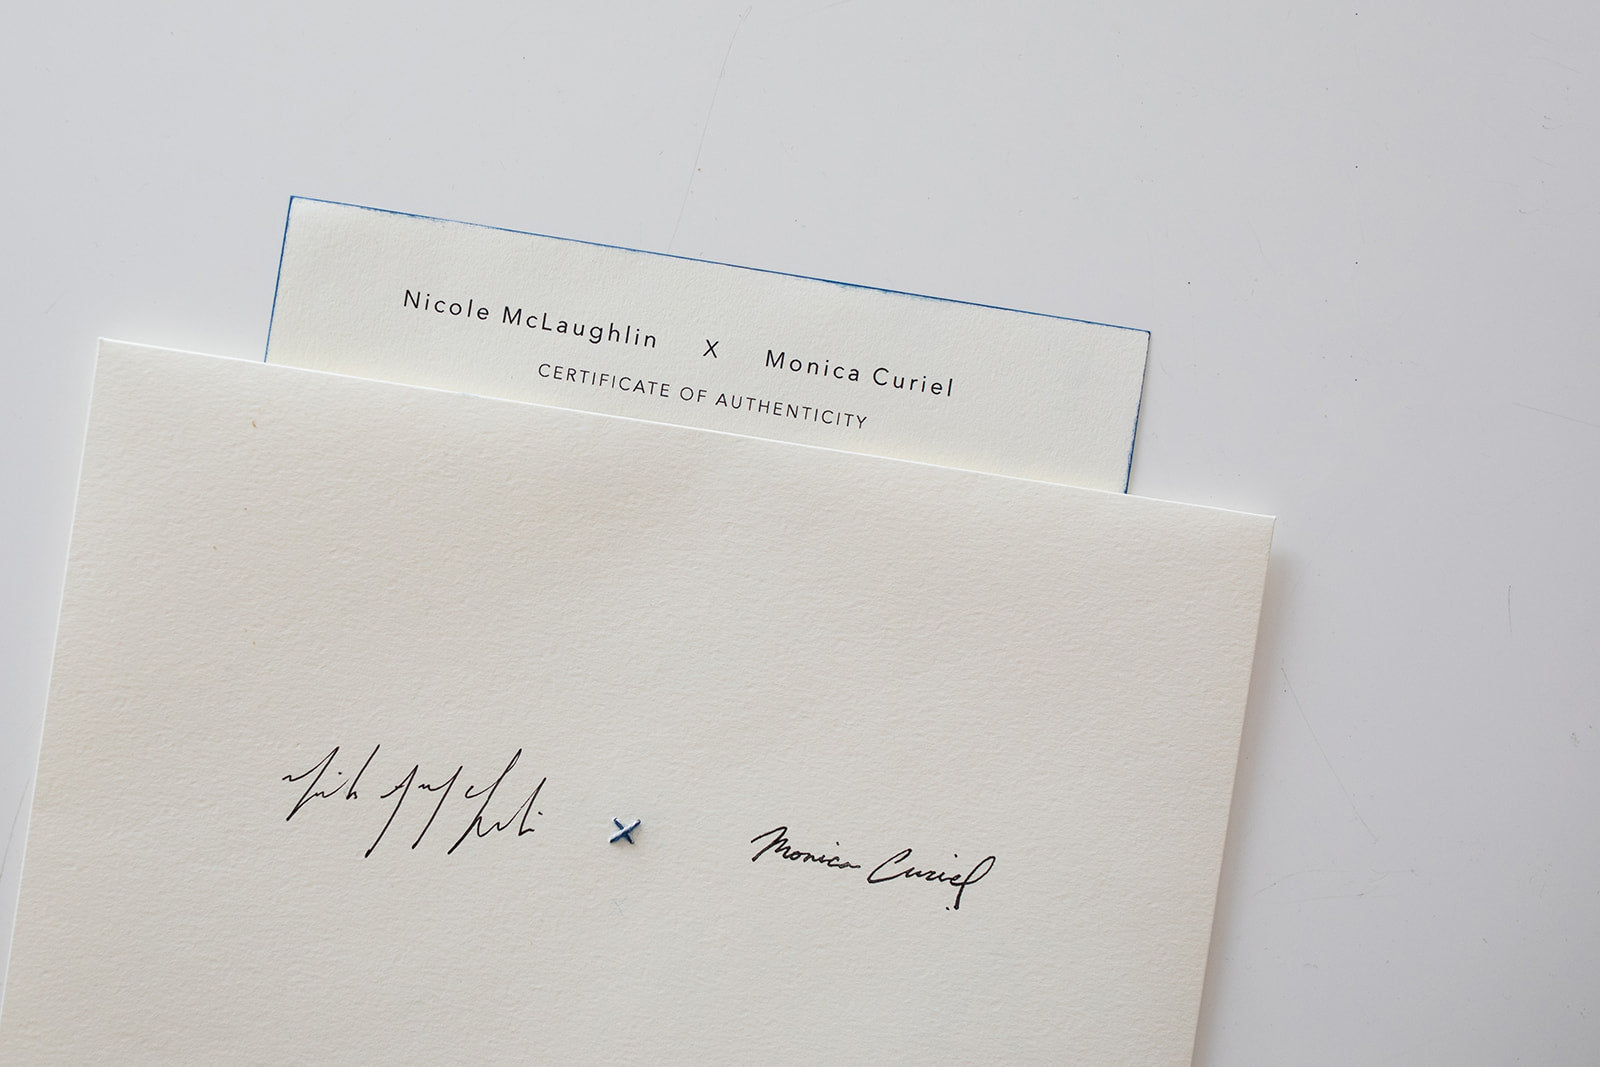 Nicole McLaughlin X Monica Curiel
CERTIFICATE OF AUTHENTICITY
x Monica Curiel